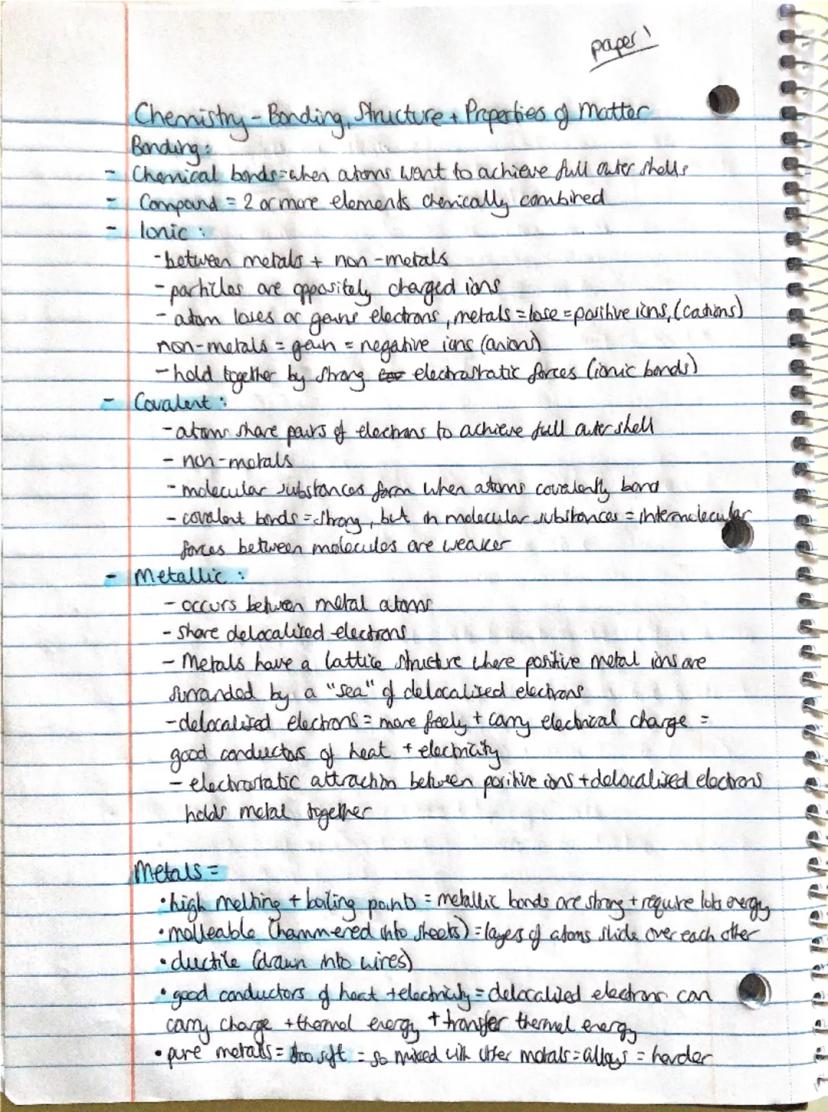 paper 1
Chemistry - Bonding, Structure + Properties of Matter
Bonding:
- Chemical bonds = when atoms want to achieve full outer shells
- Compound = 2 or more elements chemically combined
- Ionic:
- between metals + non-metals
- particles are oppositely charged ions
- atom loses or gains electrons, metals = lose = positive ions, (cations)
non-metals = gain = negative ions (anions)
- hold together by strong electrostatic forces (ionic bonds)
- Covalent:
- atoms share pairs of electrons to achieve full outer shell
- non-metals
- molecular substances form when atoms covalently bond
- covalent bonds = strong, but in molecular substances = intermolecular
forces between molecules are weaker
- Metallic:
- occurs between metal atoms
- share delocalised electrons
- Metals have a lattice structure where positive metal ions are
surrounded by a "sea" of delocalised electrons
- delocalised electrons = move freely + carry electrical charge =
good conductors of heat + electricity
- electrostatic attraction between positive ions + delocalised electrons
holds metal together
Metals =
• high melting + boiling points = metallic bonds are strong + require lots energy
• malleable (hammered into sheets) = layers of atoms slide over each other
• ductile (drawn into wires)
• good conductors of heat + electricity = delocalised electrons can
carry charge + thermal energy + transfer thermal energy
• pure metals = too soft = so mixed with other metals = alloys = harder